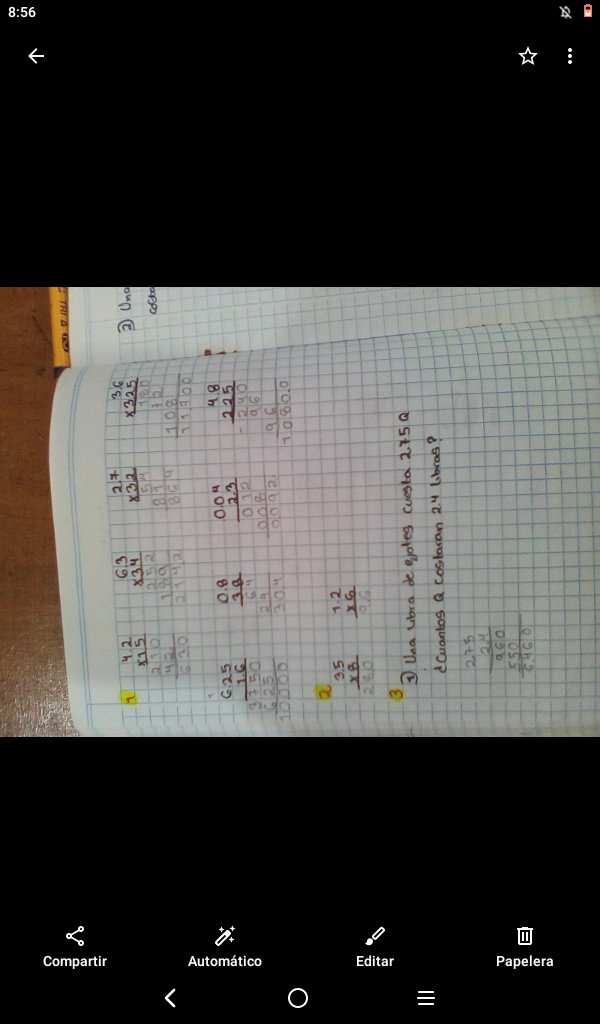 8:56
1
4.2
x1.5
210
42
630
6.3
x3.4
252
189
2142
2.7
x3.2
54
81
864
3.6
x3.25
180
72
108
11700
6.25
1.6
3750
625
10000
0.8
3.8
64
24
304
0.04
2.3
012
008
0092
4.8
2.25
240
96
96
1080.0
2
3.5
x8
280
1.2
x6
3
1) Una libra de ejotes cuesta 2.75 Q
¿Cuantos Q costaran 2.4 libras?
2.75
2.4
550
2) Una
Compartir
Automático
Editar
Papelera